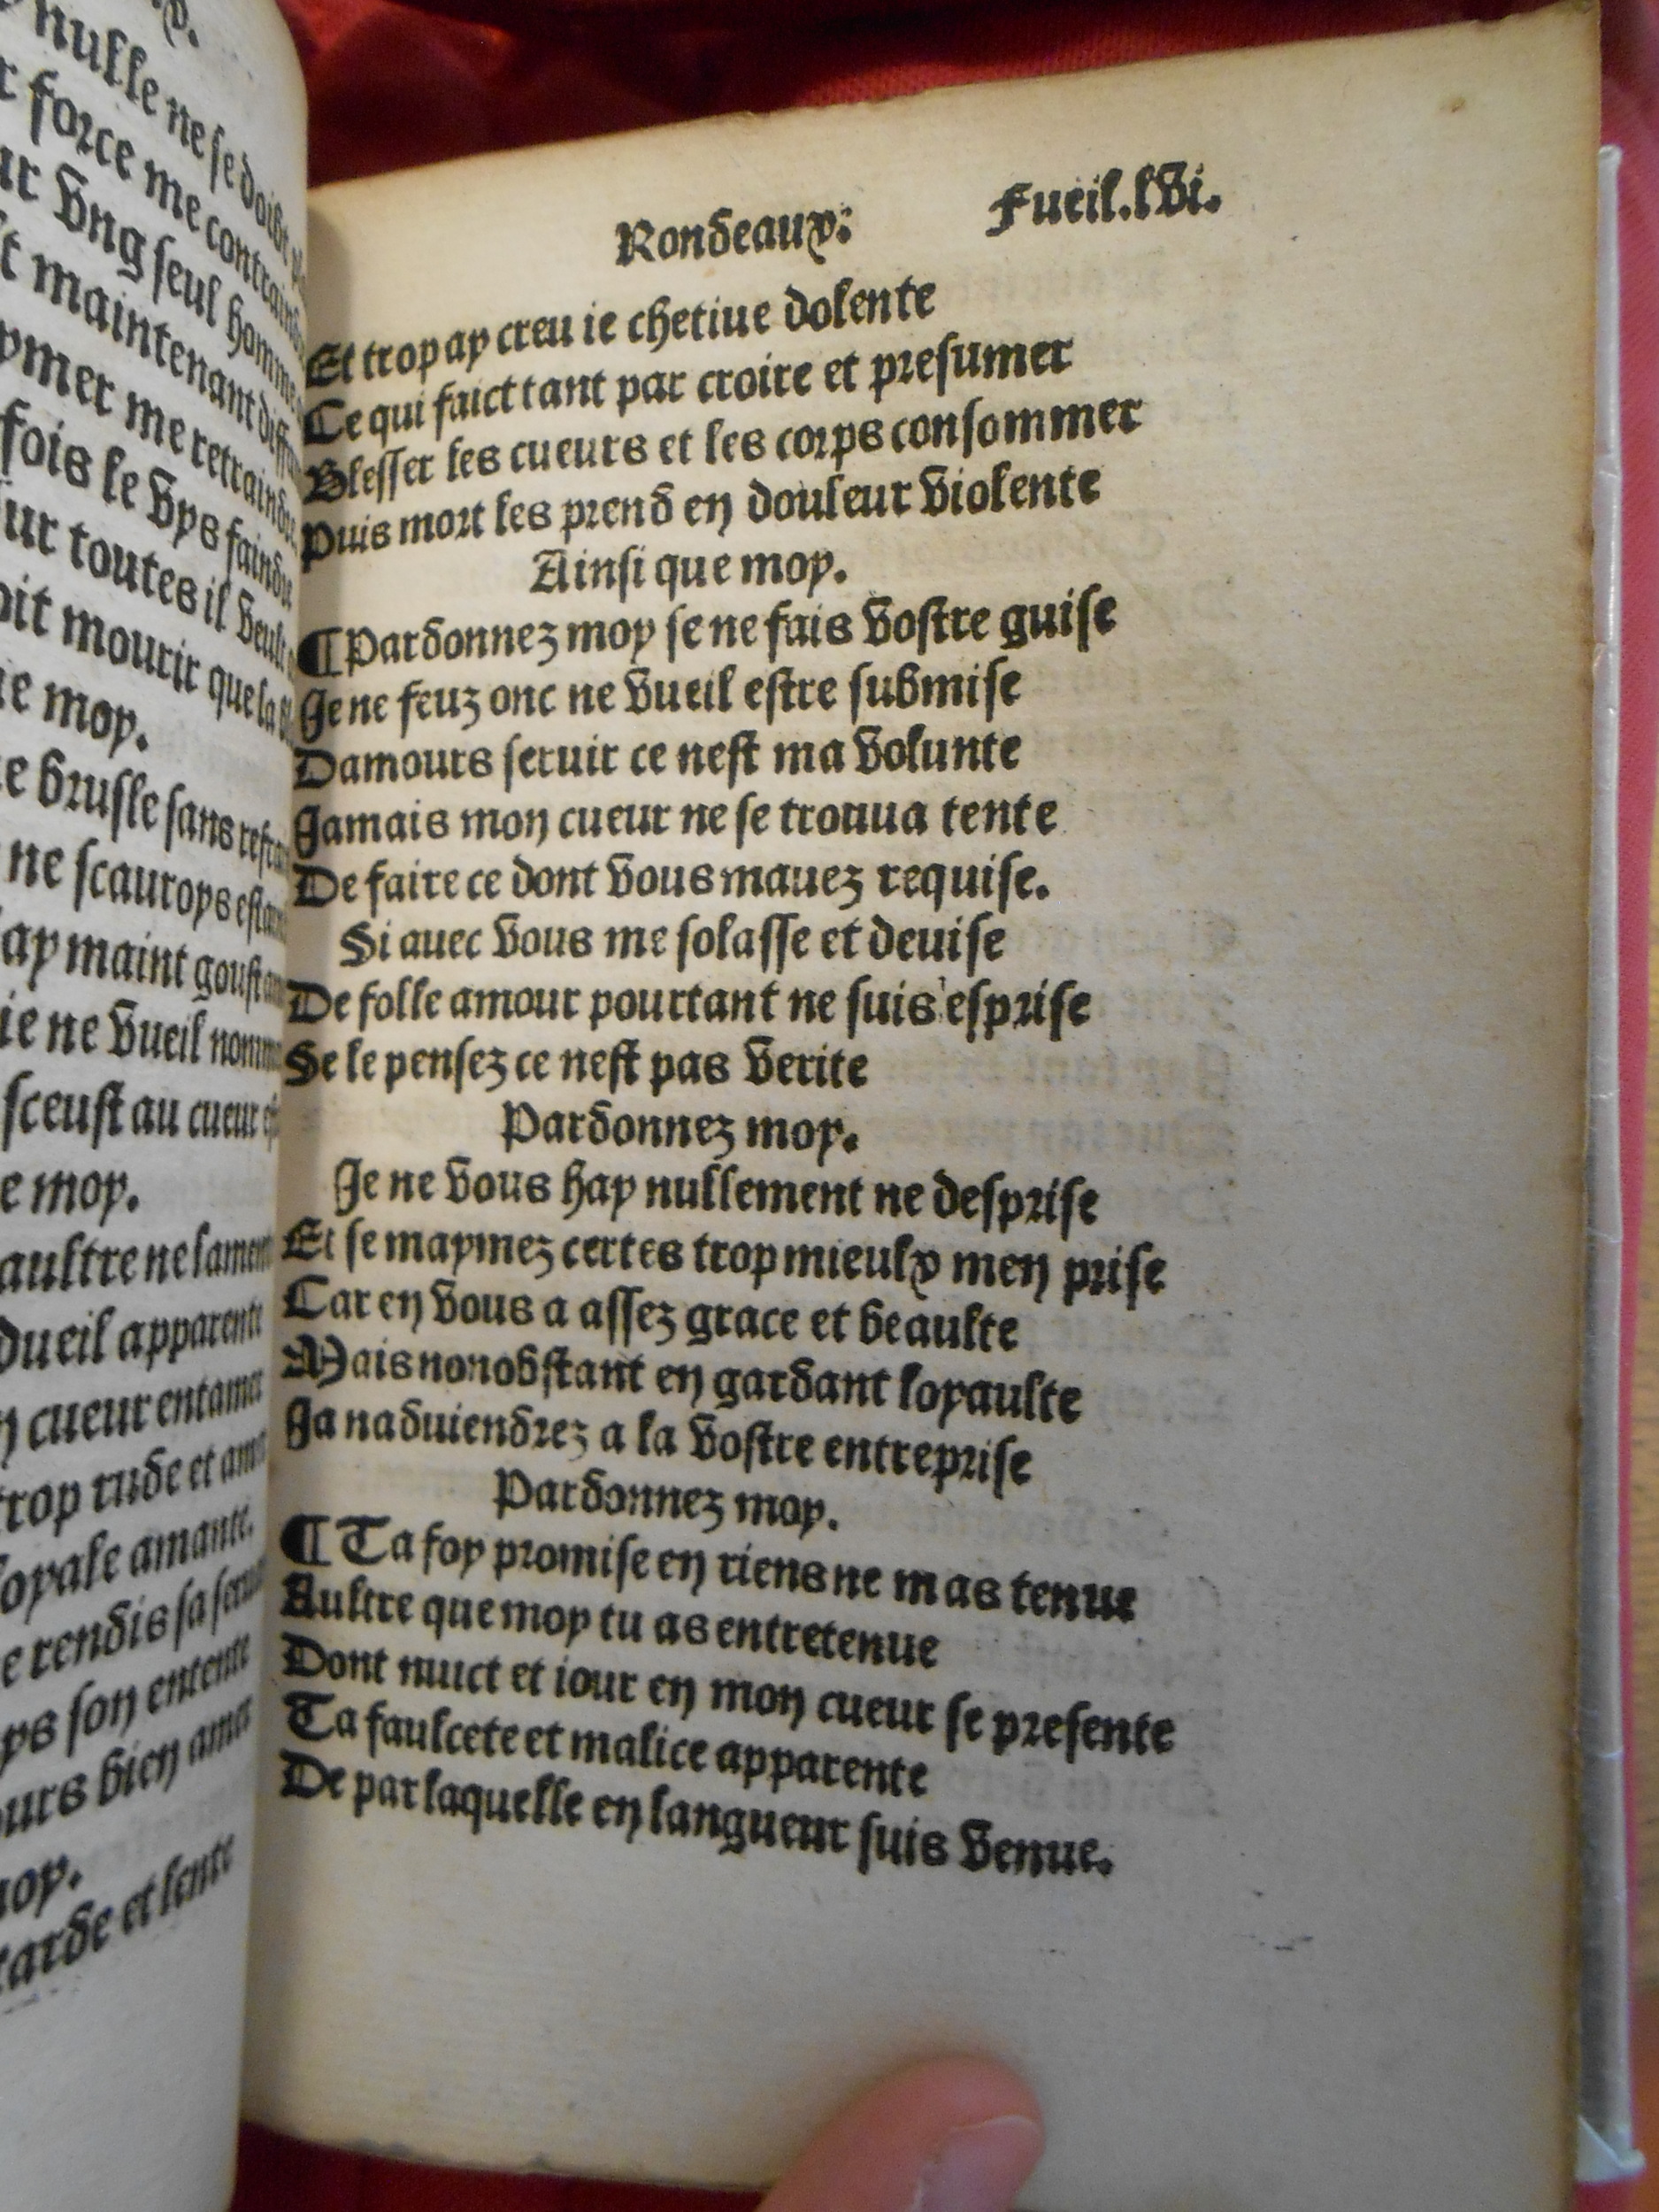 nulle ne se doibt
force me
Ung seul homme
maintenant
me
fois le Vys
toutes il Veult
mourir que la
moy.
brusle sans
ne scauroys
ay maint
ie ne Vueil
sceust au cueur
moy.
aultre ne
dueil apparente
cueur entamer
trop rude et
loyale amante.
rendis sa
son entente
bien amer
tarde et lente
Rondeaux: Fueil.lVi.
Et trop ay creu ie chetiue dolente
Ce qui faict tant par croire et presumer
Blesser les cueurs et les corps consommer
Puis mort les prend en douleur Violente
Ainsi que moy.
¶Pardonnez moy se ne fais Vostre guise
Je ne feuz onc ne Vueil estre submise
Damours seruir ce nest ma Volunte
Jamais mon cueur ne se trouua tente
De faire ce dont Vous mauez requise.
Si auec Vous me solasse et deuise
De folle amour pourtant ne suis esprise
Se le pensez ce nest pas Verite
Pardonnez moy.
Je ne Vous hay nullement ne desprise
Et se maymez certes trop mieulx men prise
Car en Vous a assez grace et beaulte
Mais nonobstant en gardant loyaulte
Ja naduiendrez a la Vostre entreprise
Pardonnez moy.
¶Ta foy promise en riens ne mas tenue
Aultre que moy tu as entretenue
Dont nuict et iour en mon cueur se presente
Ta faulcete et malice apparente
De par laquelle en langueur suis Venue.